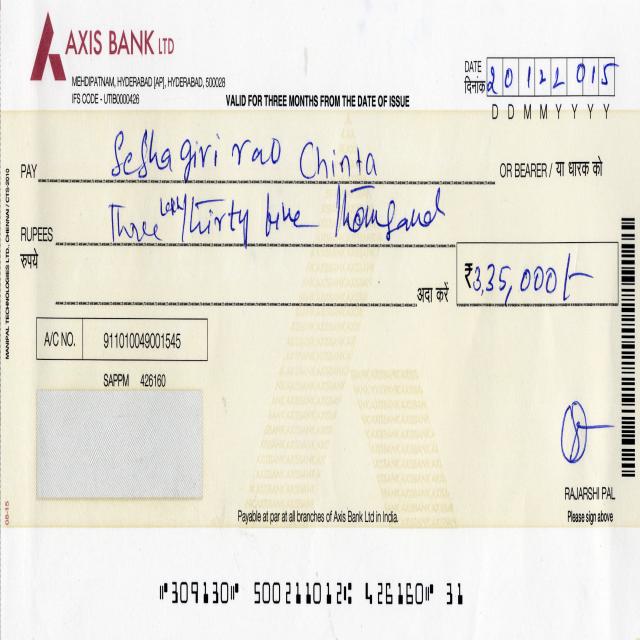 AXIS BANK LTD
MEHDIPATNAM, HYDERABAD [AP], HYDERABAD, 500028
IFS CODE - UTIB0000426
VALID FOR THREE MONTHS FROM THE DATE OF ISSUE
DATE
दिनांक 20122015
D D M M Y Y Y Y
PAY Seshagiri rao Chinta OR BEARER / या धारक को
RUPEES Three Lakh Thirty five Thousand
रुपये
अदा करें ₹3,35,000/-
A/C NO. 911010049001545
SAPPM 426160
RAJARSHI PAL
Please sign above
Payable at par at all branches of Axis Bank Ltd in India.
MANIPAL TECHNOLOGIES LTD. CHENNAI / CTS-2010
08-15
⑈309130⑈ 500211012⑆ 426160⑈ 31